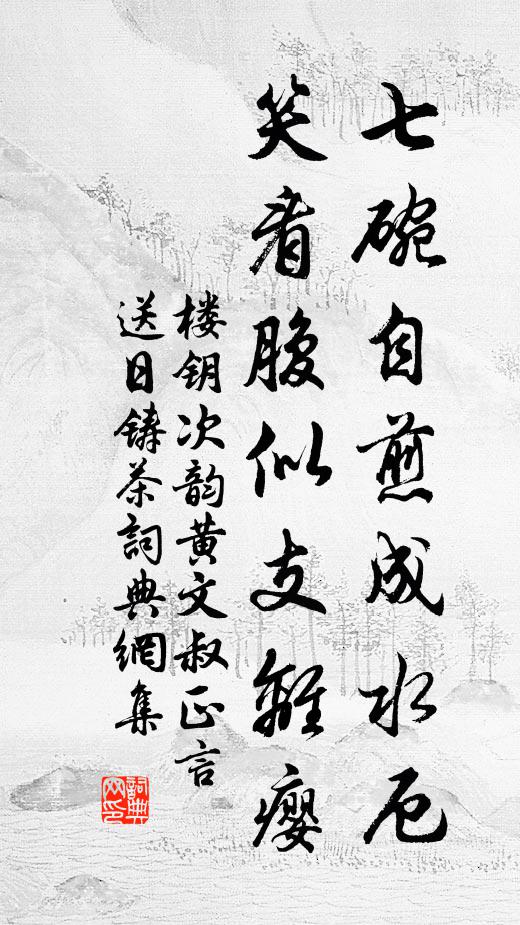 七碗自煎成水厄
笑看腹似支離癭
楼钥次韵黄文叔正言
送日鋳茶詞典網集
詞典
网印